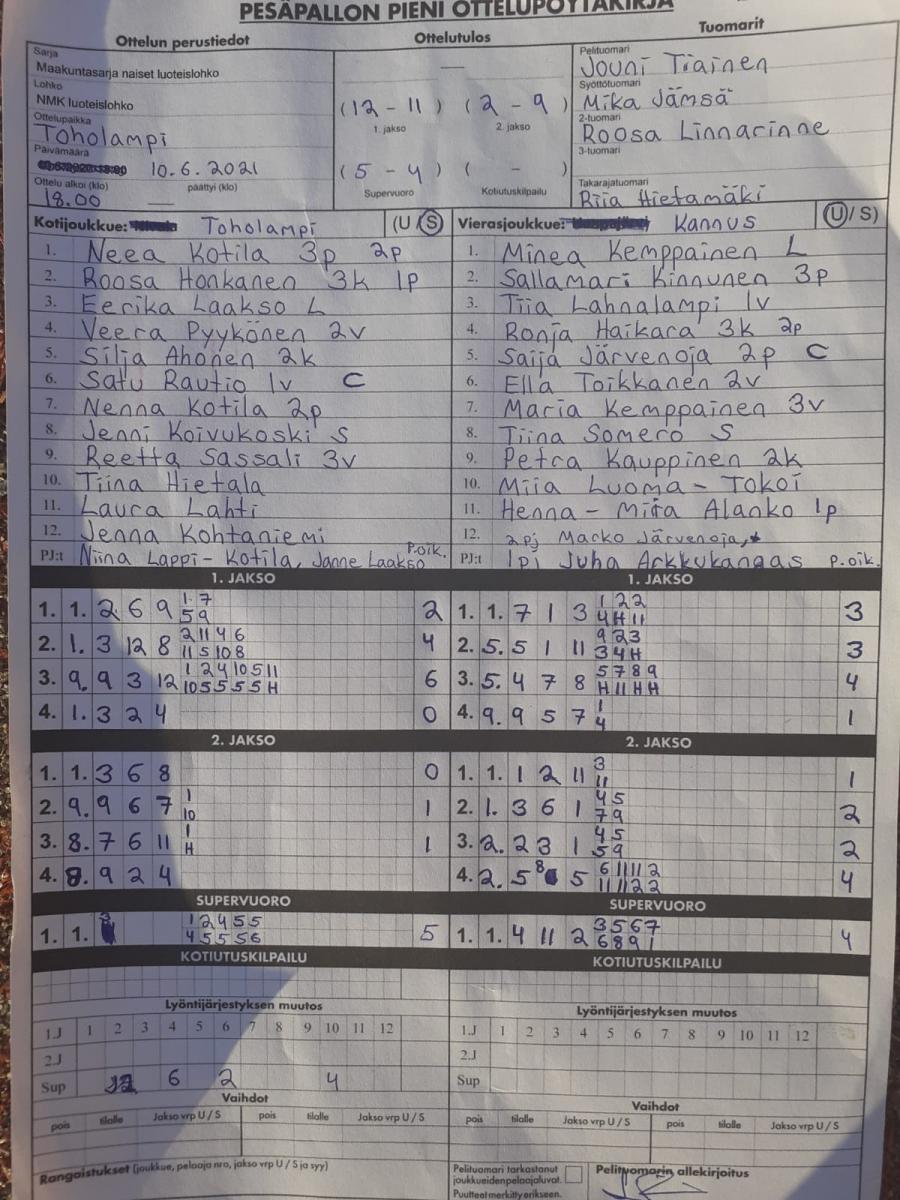 PESÄPALLON PIENI OTTELUPÖYTÄKIRJA
Ottelun perustiedot
Ottelutulos
Tuomarit
Sarja
Maakuntasarja naiset luoteislohko
Lohko
NMK luoteislohko
Ottelupaikka
Toholampi
Päivämäärä
10.6.2021
Ottelu alkoi (klo) päättyi (klo)
18.00 —
—
(12 - 11) (2 - 9)
1. jakso 2. jakso
(5 - 4) ( - )
Supervuoro Kotiutuskilpailu
Pelituomari
Jouni Tiainen
Syöttötuomari
Mika Jämsä
2-tuomari
Roosa Linnarinne
3-tuomari
Takarajatuomari
Riia Hietamäki
Kotijoukkue: Toholampi (U / S)
1. Neea Kotila 3p 2p
2. Roosa Honkanen 3k 1p
3. Eerika Laakso L
4. Veera Pyykönen 2v
5. Silja Ahonen 2k
6. Satu Rautio 1v C
7. Nenna Kotila 2p
8. Jenni Koivukoski S
9. Reetta Sassali 3v
10. Tiina Hietala
11. Laura Lahti
12. Jenna Kohtaniemi
PJ:t Niina Lappi-Kotila, Janne Laakso P.oik.
Vierasjoukkue: Kannus (U / S)
1. Minea Kemppainen L
2. Sallamari Kinnunen 3p
3. Tiia Lahnalampi 1v
4. Ronja Haikara 3k 2p
5. Saija Järvenoja 2p C
6. Ella Toikkanen 2v
7. Maria Kemppainen 3v
8. Tiina Somero S
9. Petra Kauppinen 2k
10. Miia Luoma-Tokoi
11. Henna-Miira Alanko 1p
12. 2pj Marko Järvenoja,
PJ:t 1pj Juha Arkkukangas P.oik.
1. JAKSO
1. 1. 2 6 9 1 7 2
5 9
2. 1. 3 12 8 2 11 4 6 4
11 5 10 8
3. 9. 9 3 12 1 2 4 10 5 11 6
10 5 5 5 5 H
4. 1. 3 2 4 0
1. JAKSO
1. 1. 7 1 3 1 2 2 3
4 H 11
2. 5. 5 1 11 9 2 3 3
3 4 H
3. 5. 4 7 8 5 7 8 9 4
H 11 H H
4. 9. 9 5 7 1 1
4
2. JAKSO
1. 1. 3 6 8 0
2. 9. 9 6 7 1 1
10
3. 8. 7 6 11 1 1
H
4. 8. 9 2 4
2. JAKSO
1. 1. 1 2 11 3 1
11
2. 1. 3 6 1 4 5 2
7 9
3. 2. 2 3 1 4 5 2
5 9
4. 2. 5 8 5 6 11 11 2 4
11 11 2 2
SUPERVUORO
1. 1. 1 2 4 5 5 5
4 5 5 5 6
SUPERVUORO
1. 1. 4 11 2 3 5 6 7 4
6 8 9 1
KOTIUTUSKILPAILU
KOTIUTUSKILPAILU
Lyöntijärjestyksen muutos
1.J 1 2 3 4 5 6 7 8 9 10 11 12
2.J
Sup 12 6 2 4
Lyöntijärjestyksen muutos
1.J 1 2 3 4 5 6 7 8 9 10 11 12
2.J
Sup
Vaihdot
pois tilalle Jakso vrp U / S pois tilalle Jakso vrp U / S
Vaihdot
pois tilalle Jakso vrp U / S pois tilalle Jakso vrp U / S
Rangaistukset (joukkue, pelaaja nro, jakso vrp U / S ja syy)
Pelituomari tarkastanut
joukkueiden pelaajaluvat.
Puutteet merkitty erikseen.
Pelituomarin allekirjoitus